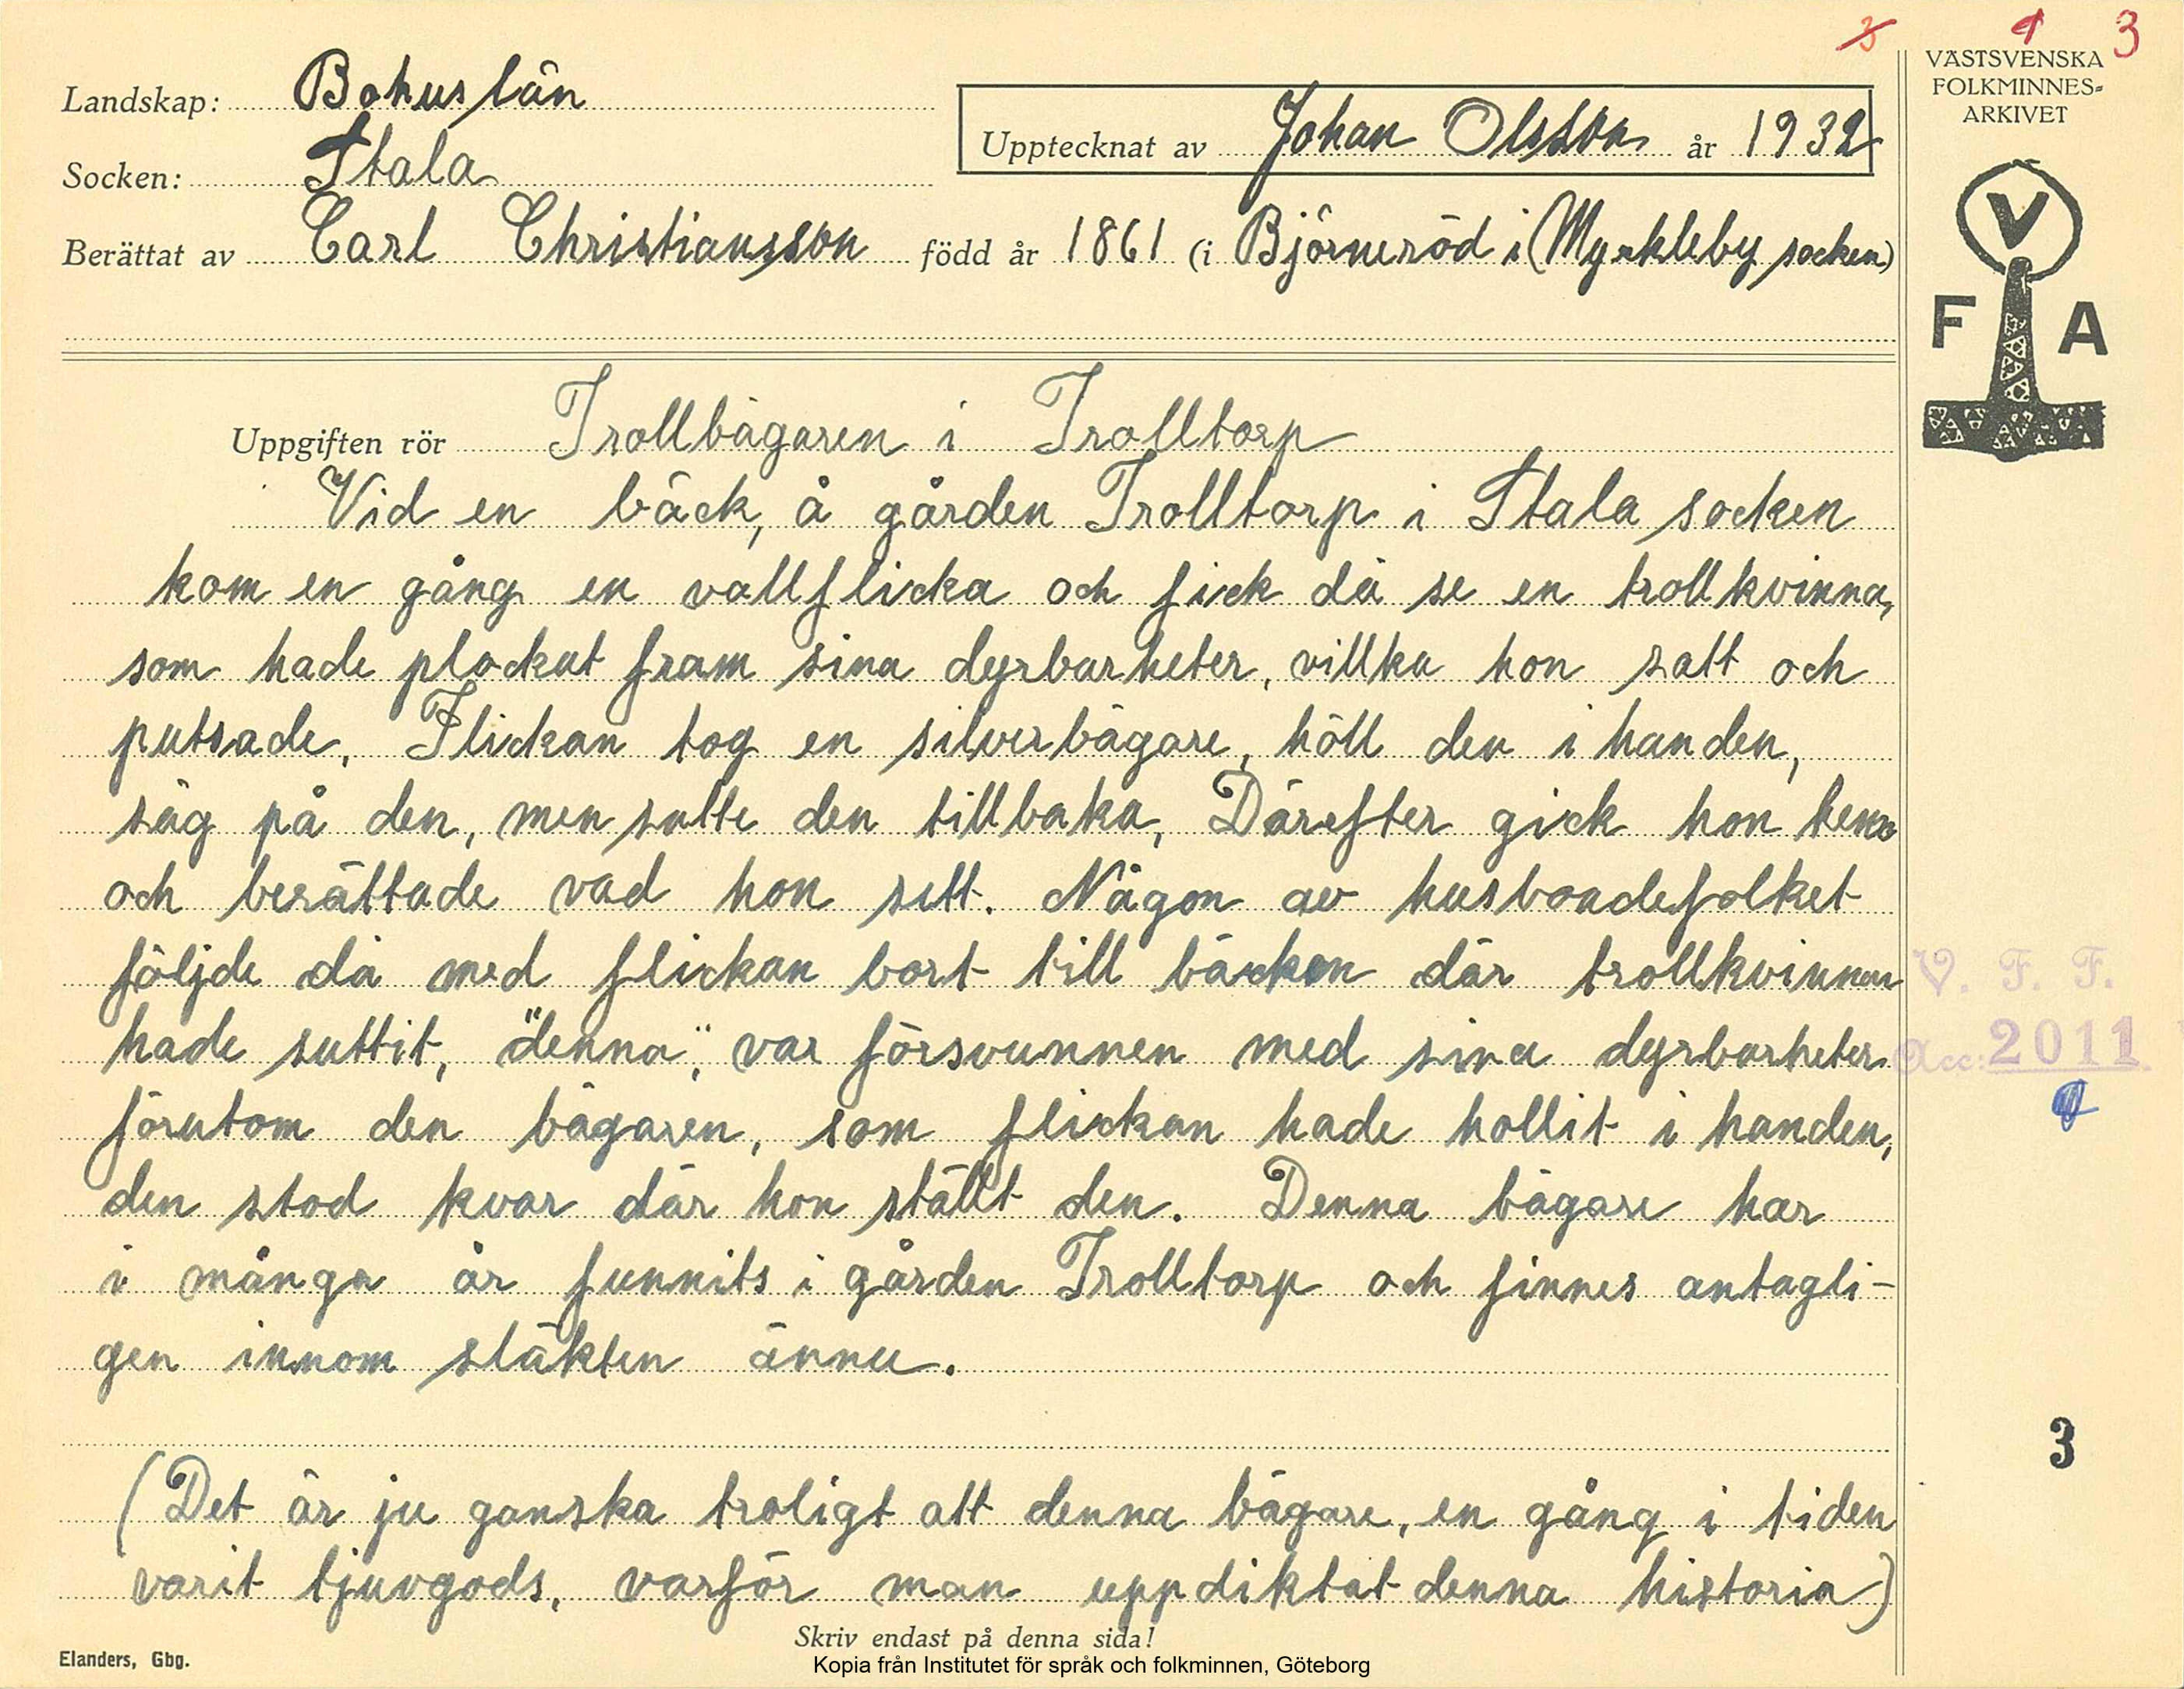 3 4 3
VÄSTSVENSKA
FOLKMINNES-
ARKIVET
V
F A
Landskap: Bohuslän
Upptecknat av Johan Olsson år 1932
Socken: Stala
Berättat av Carl Christiansson född år 1861 (i Björneröd i (Myckleby socken)
Uppgiften rör Trollbägaren i Trolltorp
Vid en bäck, å gården Trolltorp i Stala socken
kom en gång en vallflicka och fick då se en trollkvinna,
som hade plockat fram sina dyrbarheter, villka hon satt och
putsade. Flickan tog en silverbägare, höll den i handen,
såg på den, men satte den tillbaka, Därefter gick hon hem
och berättade vad hon sett. Någon av husbondefolket
följde då med flickan bort till bäcken där trollkvinnan
hade suttit, "denna", var försvunnen med sina dyrbarheter
förutom den bägaren, som flickan hade hållit i handen,
den stod kvar där hon ställt den. Denna bägare har
i många år funnits i gården Trolltorp och finnes antagli-
gen innom släkten ännu.
(Det är ju ganska troligt att denna bägare, en gång i tiden
varit tjuvgods, varför man uppdiktat denna historia)
V. F. F.
Acc: 2011
3
Skriv endast på denna sida!
Elanders, Gbg.
Kopia från Institutet för språk och folkminnen, Göteborg